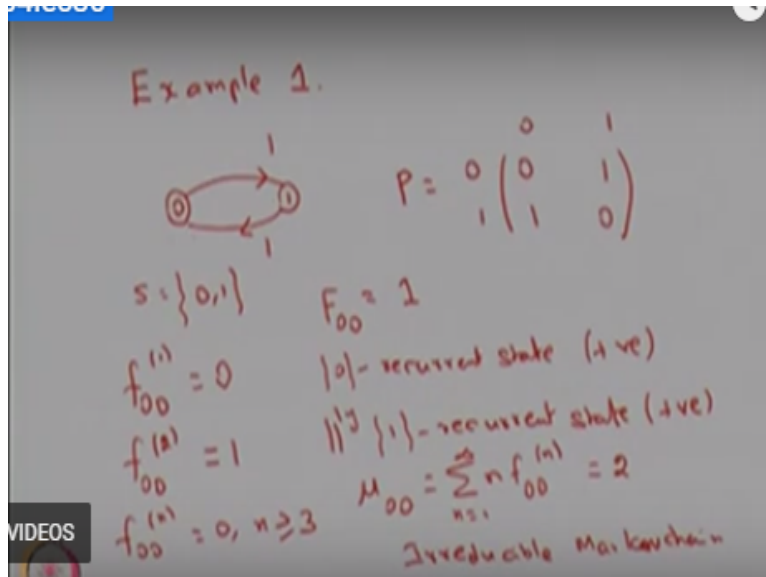 Example 1.
1
0 1
1
P = 0 ( 0 1 )
1 ( 1 0 )
0 1
S = {0,1}
F₀₀ = 1
f₀₀⁽¹⁾ = 0
{0} - recurrent state (+ve)
f₀₀⁽²⁾ = 1
|||ly {1} - recurrent state (+ve)
μ₀₀ = ∑ₙ₌₁^∞ n f₀₀⁽ⁿ⁾ = 2
f₀₀⁽ⁿ⁾ = 0, n ≥ 3
Irreducible Markov chain
VIDEOS